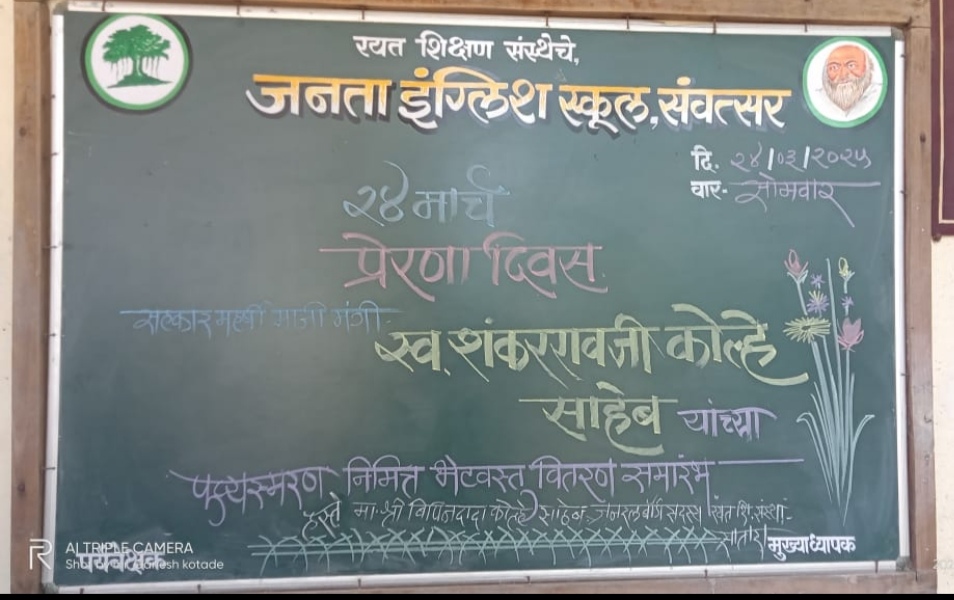 रयत शिक्षण संस्थेचे,
जनता इंग्लिश स्कूल, संवत्सर
दि. २४/०३/२०२५
वार- सोमवार
२४ मार्च
प्रेरणा दिवस
माजी मंत्री.
स्व. शंकररावजी कोल्हे
साहेब यांच्या
निमित्त भेटवस्तु वितरण समारंभ
हस्ते मा. श्री बिपिनदादा कोल्हे साहेब जनरल बॉडी सदस्य रयत शि. संस्था-
सातारा
पर्यवेक्षक
मुख्याध्यापक
AI TRIPLE CAMERA
kotade